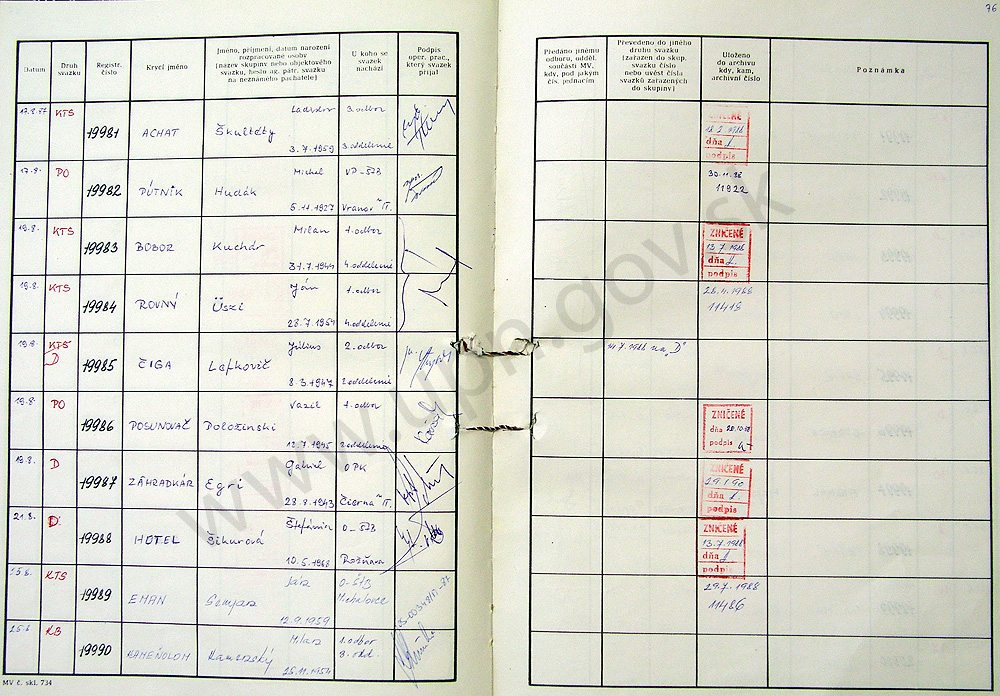 76
Datum
Druh svazku
Registr. číslo
Krycí jméno
Jméno, příjmení, datum narození
rozpracované osoby
(název skupiny nebo objektového
svazku, heslo ag. pátr. svazku
na neznámého pachatele)
U koho se
svazek
nachází
Podpis
oper. prac.,
který svazek
přijal
Předáno jinému
odboru, odděl.
součásti MV,
kdy, pod jakým
čís. jednacím
Převedeno do jiného
druhu svazku
(zařazen do skup.
svazku číslo
nebo uvést čísla
svazků zařazených
do skupiny)
Uloženo
do archivu
kdy, kam,
archivní číslo
Poznámka
KTS 19981 ACHAT Ladislav Škultéty 3.7.1959 3. odbor 3. oddelenie
ZNIČENÉ
dňa
podpis
17.8. PO 19982 PÚTNIK Michal Hudák 5.11.1927 Vranov n/T.
30.11.88
11922
19.8. KTS 19983 BOBOR Milan Kuchár 31.7.1944 1. odbor 4. oddelenie
ZNIČENÉ
13.7.1988
dňa
podpis
19.8. KTS 19984 ROVNÝ Ján Üszi 28.7.1954 1. odbor 4. oddelenie
28.4.1988
11415
19.8. KTS D 19985 ČIGA Július Lefkovič 8.3.1947 2. odbor 2. oddelenie
na „D"
19.8. PO 19986 POSUNOVAČ Vazil Položinski 12.7.1945 1. odbor 2. oddelenie
ZNIČENÉ
dňa 28.10.88
podpis
19.8. D 19987 ZÁHRADKÁR Gabriel Egri 28.8.1943 OPK Čierna n/T.
ZNIČENÉ
dňa
podpis
21.8. D 19988 HOTEL Štefánia Šikurová 10.5.1968 O-ŠTB Rožňava
ZNIČENÉ
13.7.1988
dňa
podpis
KTS 19989 EMAN 12.9.1959 O-ŠTB Michalovce
29.7.1988
11486
KB 19990 KAMEŇOLOM Milan Kamenský 25.11.1954
MV č. skl. 734
www.upn.gov.sk